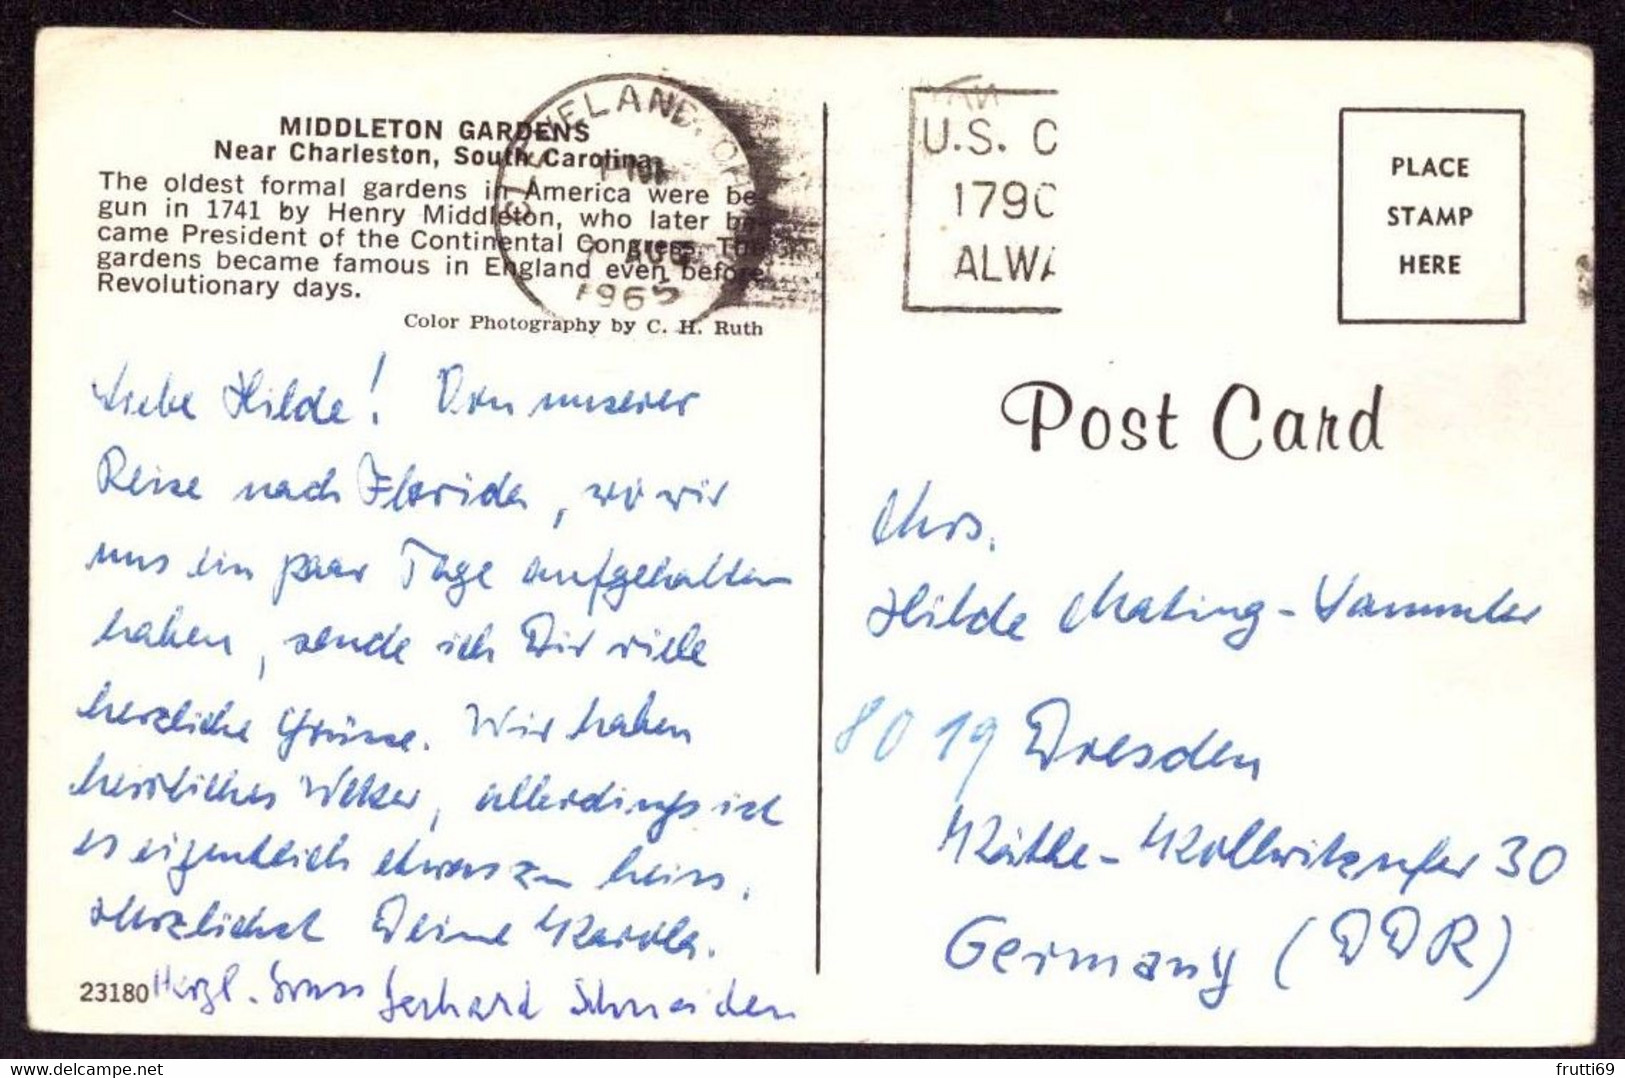 MIDDLETON GARDENS
Near Charleston, South Carolina
The oldest formal gardens in America were be-
gun in 1741 by Henry Middleton, who later be-
came President of the Continental Congress. The
gardens became famous in England even before
Revolutionary days.
Color Photography by C. H. Ruth
CLEVELAND, OH
AUG
1965
Liebe Hilde! Von unserer
Reise nach Florida, wo wir
uns ein paar Tage aufgehalten
haben, sende ich Dir viele
herzliche Grüsse. Wir haben
herrliches Wetter, allerdings ist
es eigentlich etwas zu heiss.
Herzlichst Deine Karola.
Herzl. Gruss Gerhard Schneider
23180
U.S. C
1790
ALWA
PLACE
STAMP
HERE
Post Card
Mrs.
Hilde Mating-Sammler
8019 Dresden
Käthe-Kollwitzufer 30
Germany (DDR)
www.delcampe.net
frutti69